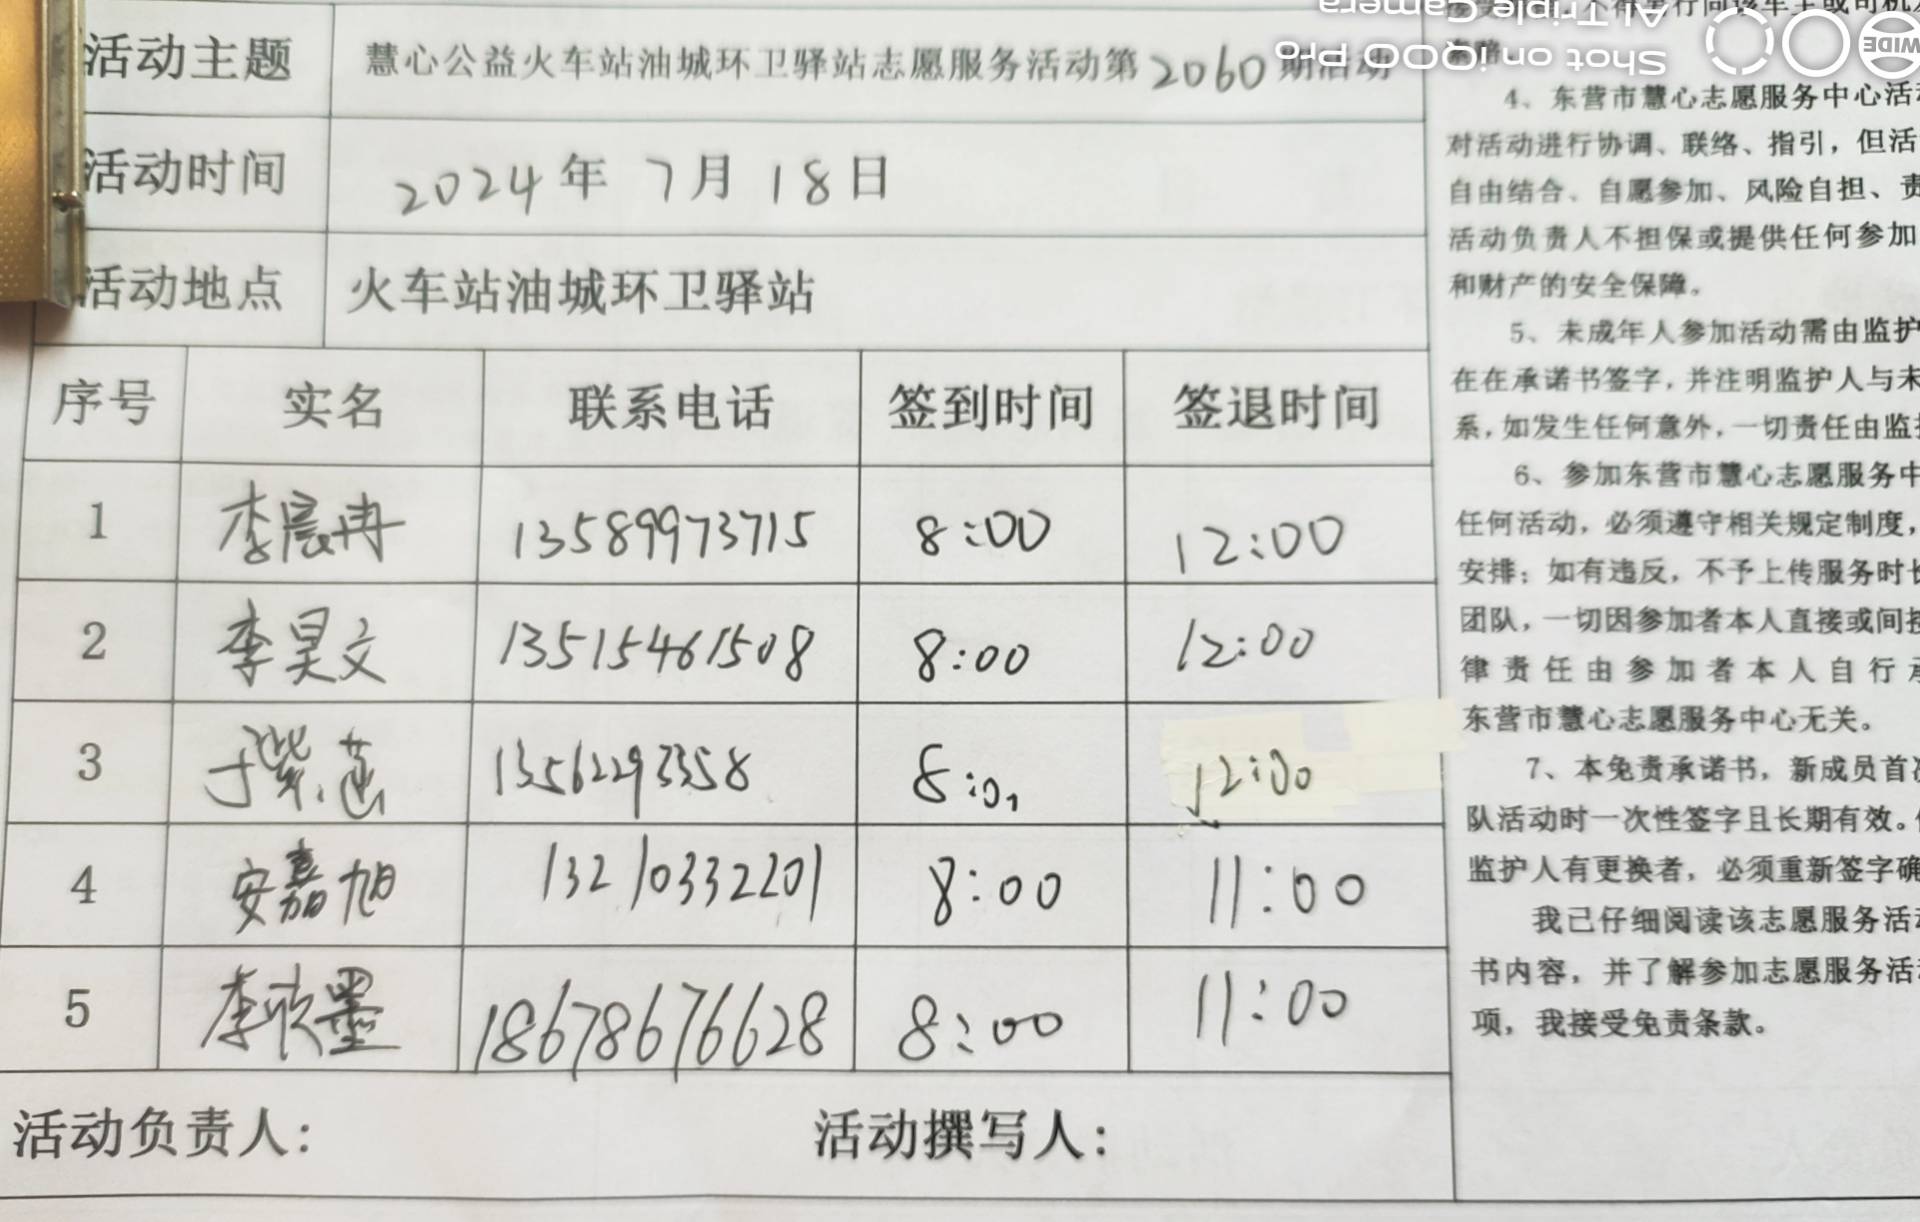 活动主题 慧心公益火车站油城环卫驿站志愿服务活动第2060期活动
活动时间 2024年7月18日
活动地点 火车站油城环卫驿站
序号 实名 联系电话 签到时间 签退时间
1 李宸冉 13589973715 8:00 12:00
2 李昊文 13515461508 8:00 12:00
3 于紫菡 13562293358 8:01 12:00
4 安嘉旭 13210332201 8:00 11:00
5 李欣墨 18678676628 8:00 11:00
活动负责人: 活动撰写人:
4、东营市慧心志愿服务中心活动
对活动进行协调、联络、指引，但活
自由结合、自愿参加、风险自担、责
活动负责人不担保或提供任何参加
和财产的安全保障。
5、未成年人参加活动需由监护
在在承诺书签字，并注明监护人与未
系，如发生任何意外，一切责任由监护
6、参加东营市慧心志愿服务中
任何活动，必须遵守相关规定制度，
安排；如有违反，不予上传服务时长
团队，一切因参加者本人直接或间接
律责任由参加者本人自行承
东营市慧心志愿服务中心无关。
7、本免责承诺书，新成员首次
队活动时一次性签字且长期有效。
监护人有更换者，必须重新签字确
我已仔细阅读该志愿服务活动
书内容，并了解参加志愿服务活动
项，我接受免责条款。
Shot on iQOO Pro
AI Triple Camera
WIDE